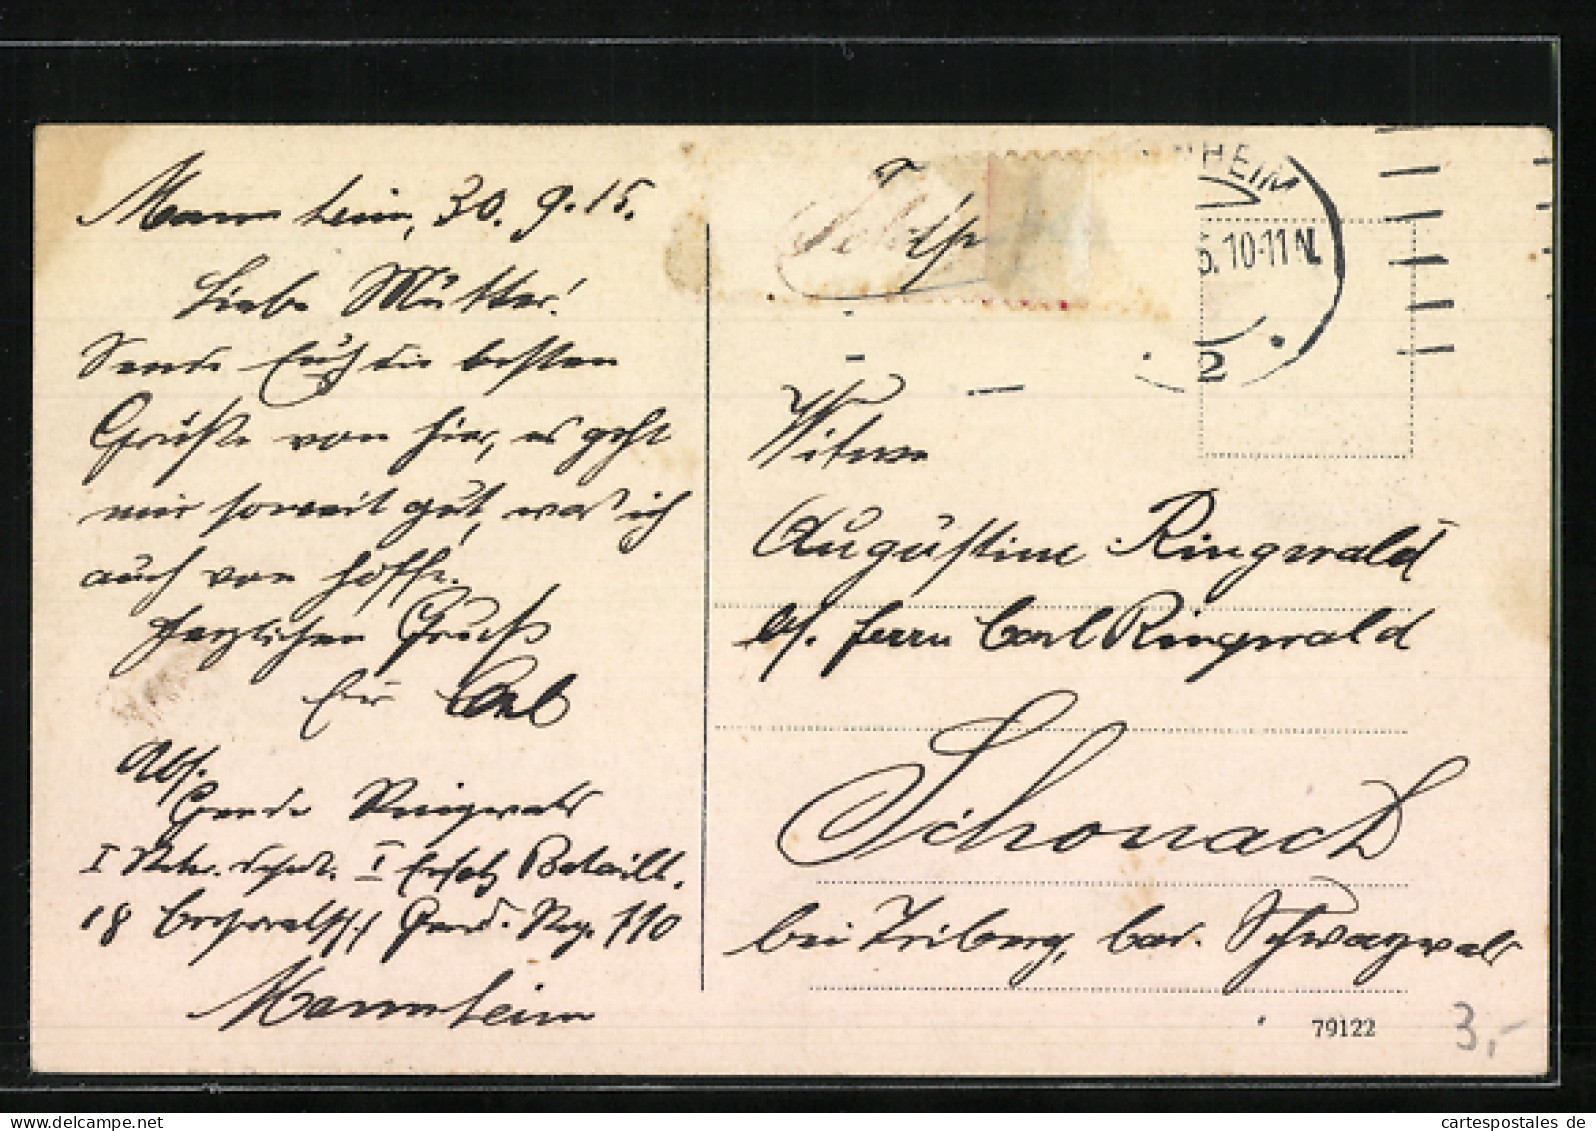 Mannheim, 30.9.15.
Liebe Mutter!
Sende Euch die besten
Grüße von hier, es geht
mir soweit gut, was ich
auch von hoffe.
Herzlichen Gruß
Eur Carl
Abs.
Ringwald
I Ersatz Bataill.
18 Gren. Reg. 110
Mannheim
Feldp
NHEIM
5.10-11N.
2
Witwe
Augustine Ringwald
Herrn Carl Ringwald
Schonach
bei Triberg, bad. Schwarzwald
79122
3,-
cartespostales de